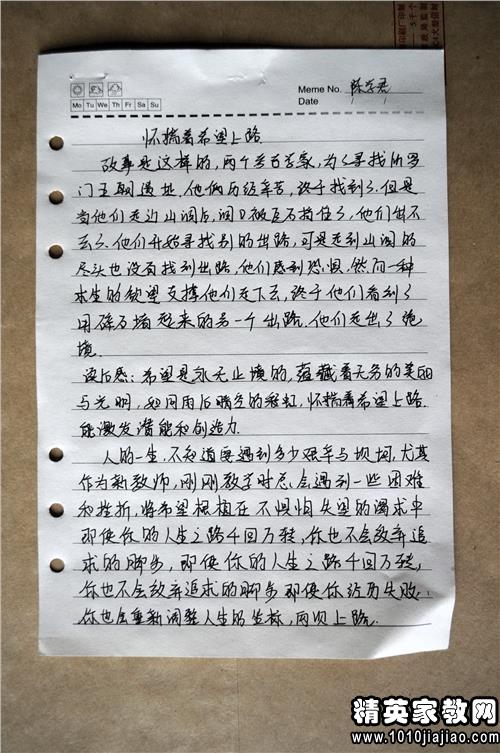 Mo Tu We Th Fr Sa Su
Meme No.
Date / /
怀揣着希望上路
故事是这样的，两个考古专家，为了寻找所罗
门王朝遗址，他俩历经辛苦，终于找到了。但是
当他们走进山洞后，洞口被巨石挡住了，他们出不
去了。他们开始寻找别的出路，可是走到山洞的
尽头也没有找到出路，他们感到恐惧，然而一种
求生的欲望支撑他们走下去，终于他们看到了
用碎石堵起来的另一个出路。他们走出了绝
境。
读后感：希望是永无止境的，蕴藏着无穷的美丽
与光明，如同雨后晴空的彩虹，怀揣着希望上路。
能激发潜能和创造力。
人的一生，不知道要遇到多少艰辛与坎坷，尤其
作为新教师，刚刚教学时总会遇到一些困难
和挫折，将希望根植在不惧怕失望的渴求中
即使你的人生之路千回万转，你也不会放弃追
求的脚步，即使你的人生之路千回万转，
你也不会放弃追求的脚步 即使你经历失败，
你也会重新调整人生的坐标，再次上路。
精英家教网
www.1010jiajiao.com